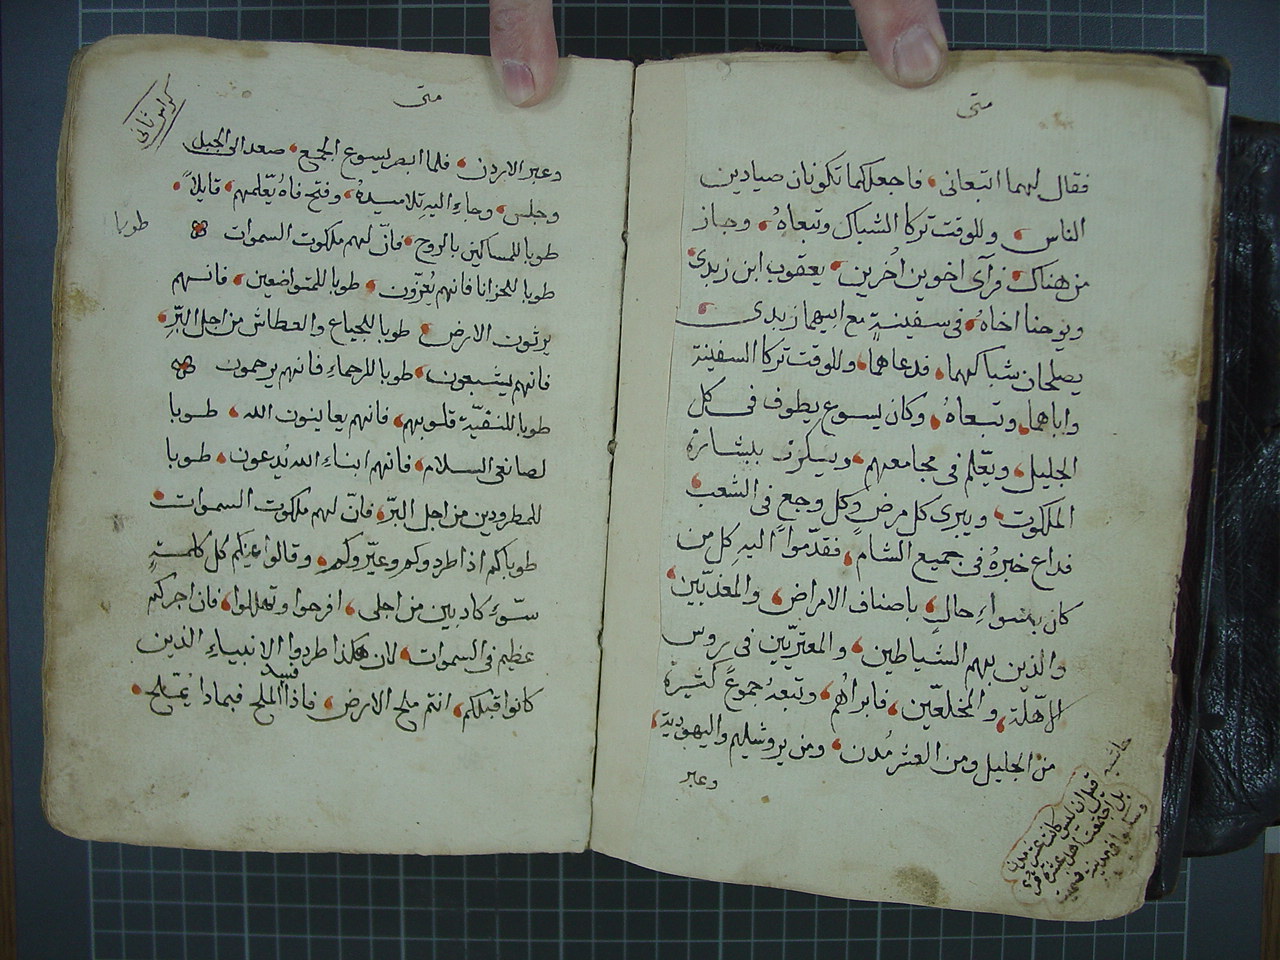 متى
فقال لهما اتبعانى فاجعلكما تكونان صيادين
الناس وللوقت تركا الشباك وتبعاهُ وجاز
من هناك فرآى اخوين اُخرين يعقوب ابن زبدى
ويوحنا اخاهُ فى سفينةٍ مع ابيهما زبدى
يصلحان شباكهما فدعاهما وللوقت تركا السفينة
واباهما وتبعاهُ وكان يسوع يطوف فى كل
الجليل ويعّلم فى مجامعهم ويكرز ببشارة
الملكوت ويبرى كل مرض وكل وجع فى الشعب
فداع خبرهُ فى جميع الشام فقدّموا اليهِ كل من
كان بهِ سواءِ حالٍ باصناف الامراض والمعذبّين
والذين بهم الشياطين والمعتريّين فى روس
الاهّلة والمخلعّين فابراهُم وتبعهُ جموعً كثيرة
من الجليل ومن العشر مُدن ومن يروشليم واليهوديّة
وعبر
حاشيه
قيل ان ليس كانت عشر مدن
بل اجتمعت اهل عشرة قرى
وسكنوا فى مدينة فسميت
متى
كراس ثانى
وعبر الاردن فلما ابصر يسوع الجمع صعد الى الجبل
وجلس وجاءِ اليهِ تلاميدهُ وفتح فاهُ يعّلمهم قايلاً
طوبا للمساكين بالروح فانّ لهم ملكوت السموات
طوبا
طوبا للحزانا فانهم يُعَزّون طوبا للمتواضعين فانهم
يرثون الارض طوبا للجياع والعطاش من اجل البرِّ
فانهم يشبعون طوبا للرحماءِ فانهم يرحمون
طوبا للنقيّة قلوبهم فانهم يعاينون الله طوبا
لصانعى السلام فانهم ابناءِ الله يُدعون طوبا
للمطرودين من اجل البرّ فانّ لهم ملكوت السموات
طوباكم اذا طردوكم وعيّروكم وقالوا عليكم كل كلمةٍ
سّوءِ كادبين من اجلى افرحوا وتهللوا فان اجركم
عظيم فى السموات لان هكذا طردوا الانبياءِ الذين
كانوا قبلكم انتم ملح الارض فاذا فسد الملح فبماذا يمّلح